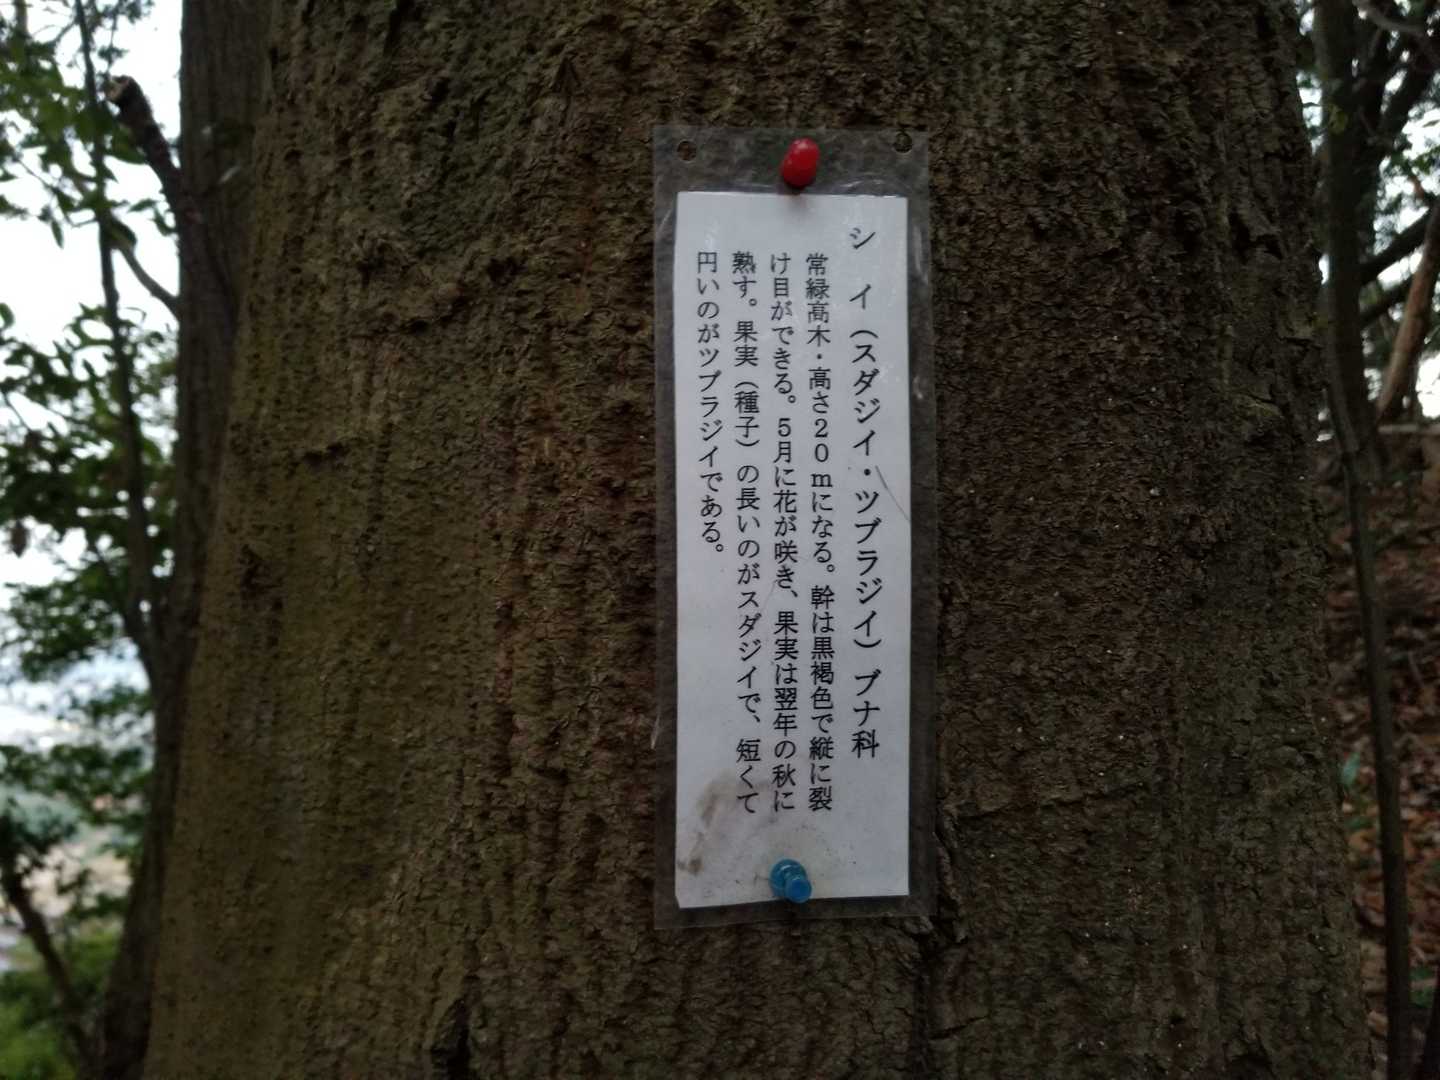 シイ（スダジイ・ツブラジイ）ブナ科
常緑高木・高さ20mになる。幹は黒褐色で縦に裂
け目ができる。5月に花が咲き、果実は翌年の秋に
熟す。果実（種子）の長いのがスダジイで、短くて
円いのがツブラジイである。